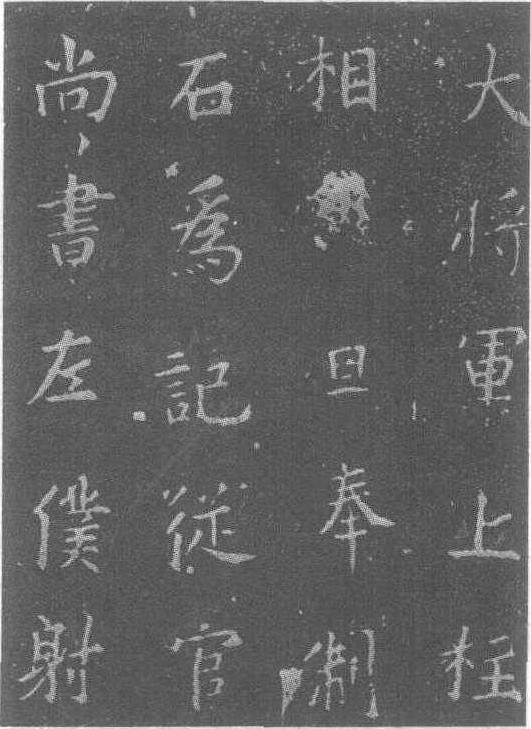 大將軍上柱
相旦奉制
石為記從官
尚書左僕射